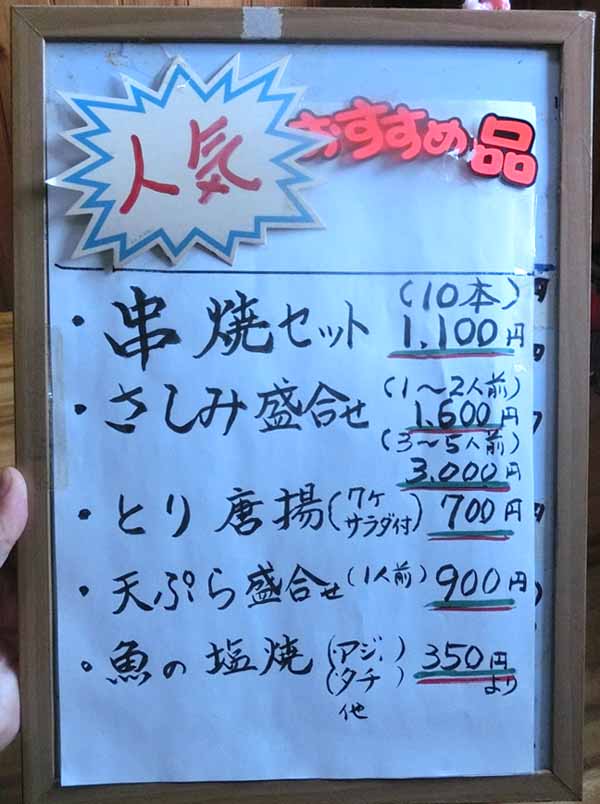 人気
おすすめ品
・串焼セット (10本) 1.100円
・さしみ盛合せ (1〜2人前) 1.600円
(3〜5人前) 3.000円
・とり唐揚 (7ケ サラダ付) 700円
・天ぷら盛合せ (1人前) 900円
・魚の塩焼 (アジ) 350円より
(タチ)
他